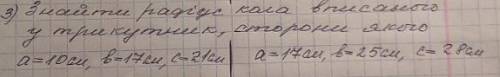 3) Знайти радіус кола вписаного
у трикутник, сторони якого
a=10см, в=17см, c=21см a=17см, в=25см, c=28см